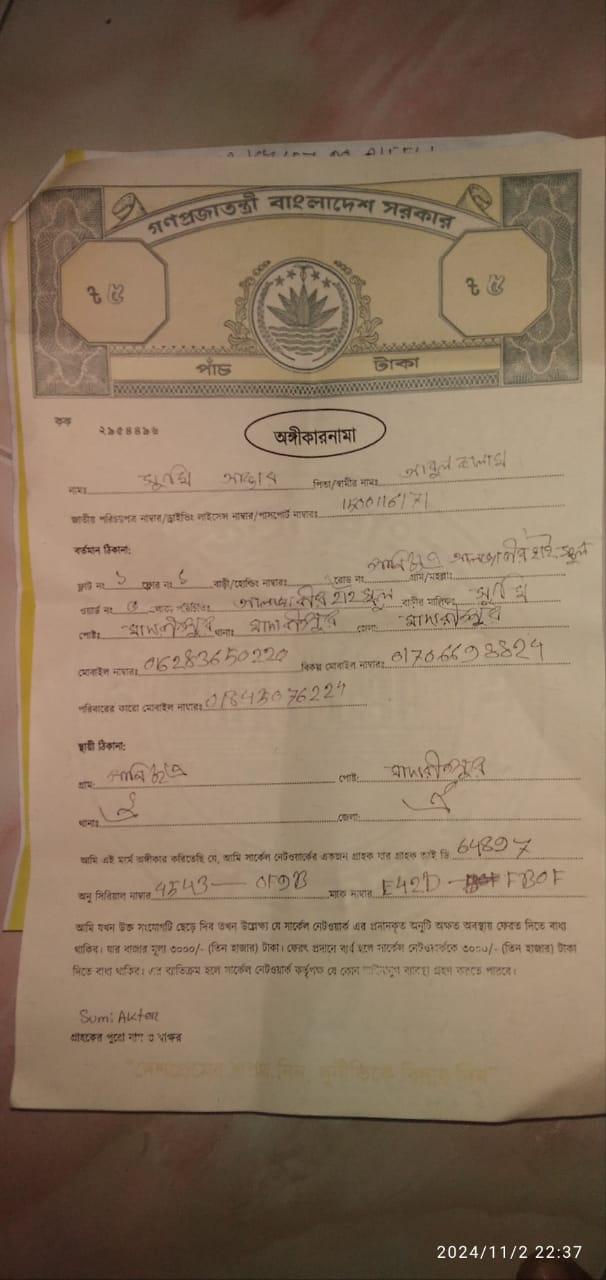 গণপ্রজাতন্ত্রী বাংলাদেশ সরকার
৳ ৫ ৳ ৫
পাঁচ টাকা
কক ২৯৫৪৪৯৬
অঙ্গীকারনামা
নামঃ সুমি আক্তার পিতা/স্বামীর নামঃ আবুল কালাম
জাতীয় পরিচয়পত্র নাম্বার/ড্রাইভিং লাইসেন্স নাম্বার/পাসপোর্ট নাম্বারঃ
বর্তমান ঠিকানা:
ফ্লাট নং ১ ফ্লোর নং ৫ বাড়ী/হোল্ডিং নাম্বারঃ রোড নং গ্রাম/মহল্লাঃ পানিছত্র আলজাবীর হাই স্কুল
ওয়ার্ড নং আলজাবীর হাই স্কুল বাড়ীর মালিকঃ সুমি
পোষ্টঃ মাদারীপুর থানাঃ মাদারীপুর জেলাঃ মাদারীপুর
মোবাইল নাম্বারঃ 016283650220 বিকল্প মোবাইল নাম্বারঃ
পরিবারের কারো মোবাইল নাম্বারঃ
স্থায়ী ঠিকানা:
গ্রাম: পানিছত্র পোষ্ট: মাদারীপুর
থানাঃ ঐ জেলা: ঐ
আমি এই মর্মে অঙ্গীকার করিতেছি যে, আমি সার্কেল নেটওয়ার্কের একজন গ্রাহক যার গ্রাহক আই ডি 64897
অনু সিরিয়াল নাম্বার 4543— 0F9B ম্যাক নাম্বার E42D - FB0F
আমি যখন উক্ত সংযোগটি ছেড়ে দিব তখন উল্লেখ্য যে সার্কেল নেটওয়ার্ক এর প্রদানকৃত অনুটি অক্ষত অবস্থায় ফেরত দিতে বাধ্য
থাকিব। যার বাজার মূল্য ৩০০০/- (তিন হাজার) টাকা। ফেরৎ প্রদানে ব্যর্থ হলে সার্কেল নেটওয়ার্ককে ৩০০০/- (তিন হাজার) টাকা
দিতে বাধ্য থাকিব। এর ব্যতিক্রম হলে সার্কেল নেটওয়ার্ক কর্তৃপক্ষ যে কোন ব্যবস্থা গ্রহণ করতে পারবে।
Sumi Aktar
গ্রাহকের পুরো নাম ও স্বাক্ষর
2024/11/2 22:37